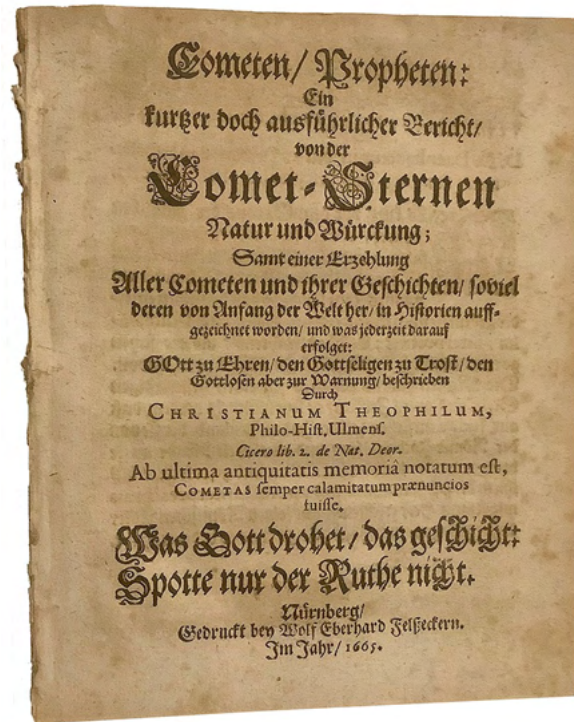 Cometen/ Propheten:
Ein
kurtzer doch ausführlicher Bericht/
von der
Comet-Sternen
Natur und Würckung;
Samt einer Erzehlung
Aller Cometen und ihrer Geschichten/ soviel
deren von Anfang der Welt her/ in Historien auff-
gezeichnet worden/ und was jederzeit darauf
erfolget:
GOtt zu Ehren/ den Gottseligen zu Trost/ den
Gottlosen aber zur Warnung/ beschrieben
Durch
CHRISTIANUM THEOPHILUM,
Philo-Hist. Ulmens.
Cicero lib. 2. de Nat. Deor.
Ab ultima antiquitatis memoriâ notatum est,
COMETAS semper calamitatum prænuncios
fuisse.
Was Gott drohet/ das geschicht:
Spotte nur der Ruthe nicht.
Nürnberg/
Gedruckt bey Wolf Eberhard Felßeckern.
Im Jahr/ 1665.